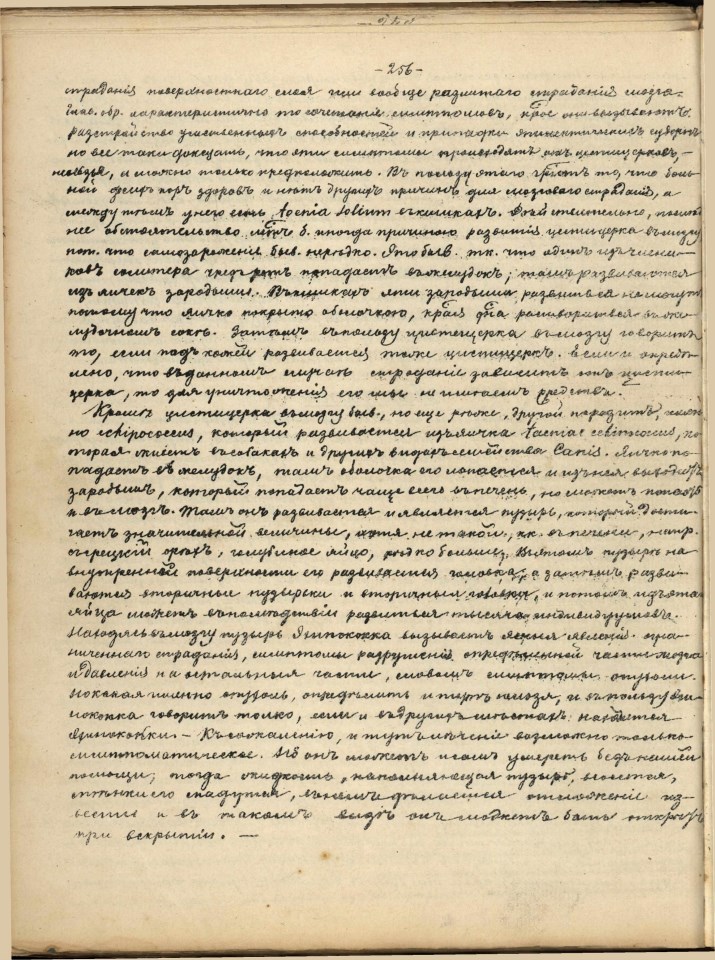 -256-
страданія поверхностнаго слоя или вообще разлитаго страданія мозга.
Так. обр. характеристично то сочетаніе симптомовъ, крое они вызываютъ
разстройство умственныхъ способностей и припадки эпилептическихъ судорогъ
но все таки доказать, что эти симптомы происходятъ отъ цистицерковъ,
нельзя, и можно только предположить. Въ пользу этого говоритъ то, что боль-
ной до сихъ поръ здоровъ и нѣтъ другихъ причинъ для мозгового страданія, а
между тѣмъ у него есть taenia solium въ кишкахъ. Дѣйствительно, послѣд
нее обстоятельство м. б. иногда причиною развитія цистицерка въ мозгу
пот. что самозараженіе быв. нерѣдко. Это быв. тк. что одинъ изъ члени-
ковъ солитера чрезъ попадаетъ въ желудокъ; тамъ развиваются
изъ яичекъ зародыши. Въ кишкахъ эти зародыши развиться не могутъ
потому что яичко покрыто оболочкою, края для растворяется въ же-
лудочномъ сокѣ. Затѣмъ въ пользу цистицерка въ мозгу говоритъ
то, если подъ кожей развивается тоже цистицеркъ. Если и опредѣ-
лено, что въ данномъ случаѣ страданіе зависитъ отъ цисти-
церка, то для уничтоженія его мы не имѣемъ средствъ.
Кромѣ цистицерка въ мозгу быв., но еще рѣже, другой паразитъ, имен
но echinococcus, который развивается изъ яичка taeniae echinococcus, ко
торая живетъ въ собакахъ и другихъ видахъ семейства Canis. Яичко по-
падаетъ въ желудокъ, тамъ оболочка его лопается и изъ нея выходитъ
зародышъ, который попадаетъ чаще всего въ печень, но можетъ попасть
и въ мозгъ. Тамъ онъ развивается и является пузырь, который дости-
гаетъ значительной величины, хотя не такой, кк. въ печени, напр.
грецкій орѣхъ, голубиное яйцо, рѣдко больше. Въ этомъ пузырѣ на
внутренней поверхности его развивается головка, а затѣмъ разви-
ваются вторичные пузырьки и вторичныя головки, и потомъ изъ этого
яйца можетъ въ послѣдствіи развиться тысяча индивидуумовъ.
Находясь въ мозгу пузырь эхинококка вызываетъ явленія огра-
ниченнаго страданія, симптомы разрушенія опредѣленной части мозга
и давленія на остальныя части, словомъ симптомы опухоли.
Но какая именно опухоль, опредѣлить и тутъ нельзя, и въ пользу эхи-
нококка говоритъ только, если и въ другихъ мѣстахъ находятся
эхинококки. - Къ сожалѣнію, и тутъ лѣченіе возможно только
симптоматическое. Но онъ можетъ и самъ умереть безъ нашей
помощи; тогда жидкость, наполняющая пузырь, всосется,
стѣнки его спадутся, въ немъ дѣлается отложеніе из-
вести и въ такомъ видѣ онъ можетъ быть открытъ
при вскрытіи. —